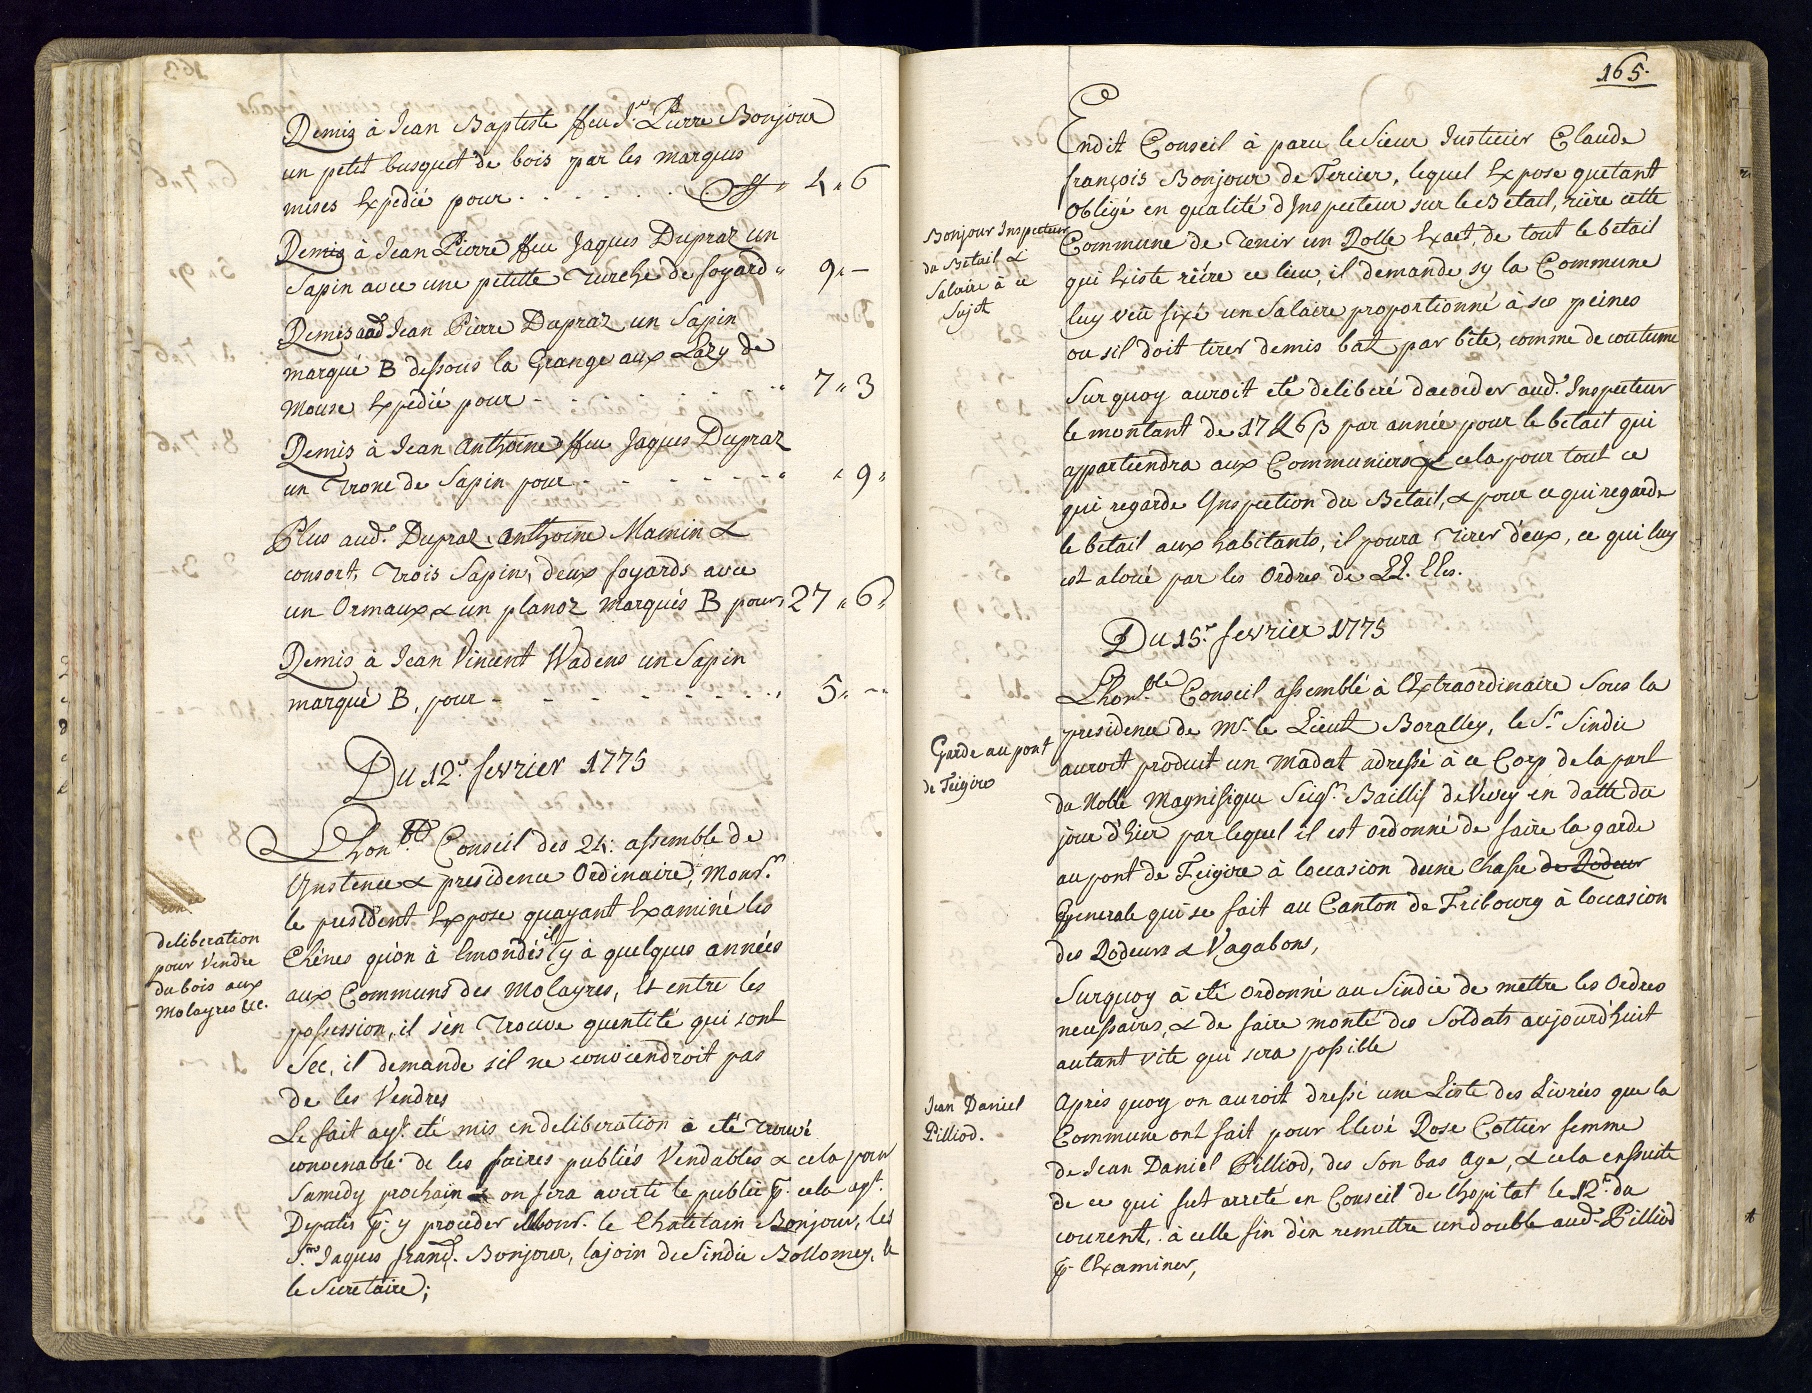 Demis à Jean Baptiste ffeu J.n Pierre Bonjour
un petit busquet de bois par les marques
mises Expedié pour . . . . . . ff " 4 " 6
Demis à Jean Pierre ffeu Jaques Dupraz un
Sapin avec une petitte Turche de foyard " 9 " —
Demis aud Jean Pierre Dupraz un Sapin
marqué B dessous la Grange aux Lazy de
Mouse Expedié pour - - - - - - " 7 " 3
Demis à Jean Anthoine ffeu Jaques Dupraz
un Tronc de Sapin pour - - - - - - " " 9 "
Plus aud. Dupraz, Anthoine Mamin &
consort, Trois Sapin, deux foyards avec
un Ormaux & un planoz marqués B pour " 27 " 6 "
Demis à Jean Vincent Wadens un Sapin
marqué B, pour - - - - - - - " 5 " --
Du 12.e fevrier 1775
Lhon.ble Conseil des 24: assemble de
Instence & presidence Ordinaire, Mons.r
le president Expose quayant Examiné les
Chênes qu'on à Emondés il y à quelques années
aux Communs des Molayres, Et entre les
possession, il s'en Trouve quentité qui sont
Sec, il demande sil ne conviendroit pas
de les Vendres
deliberation
pour Vendre
du bois aux
Molayres &c.
Le fait ay.t eté mis en deliberation à eté Trouvé
convenable de les faires publiés Vendables & cela pour
Samedy prochain & on fera averti le public p.r cela ay.t
Deputés p.r y proceder Mons.r le Chatelain Bonjour, les
S.rs Jaques Franç. Bonjour, lajoin de Sindic Bollomey, &
le Secretaire;
165.
Endit Conseil à paru le Sieur Justicier Claude
françois Bonjour de Tercier, lequel Expose quetant
Obligé en qualité d'Inspecteur sur le Bétail, rière cette
Commune de Tenir un Rolle Exact, de tout le bétail
qui Existe riére ce lieu, il demande sy la Commune
luy veu fixé un Salaire proportionné à ses peines
ou sil doit tirer demis batz par bête, comme de coutume
Bonjour Inspecteur
du Betail &
Salaire à ce
Sujet
Surquoy auroit été deliberé dacorder aud. Inspecteur
le montant de 17 £ 6 β par année pour le bétail qui
appartiendra aux Communiers & cela pour tout ce
qui regarde Inspection du Betail, & pour ce qui regarde
le bétail aux habitants, il poura Tirer d'eux, ce qui luy
est aloué par les Ordres de LL. EEs.
Du 15.e fevrier 1775
Lhon.ble Conseil assemblé à l'Extraordinaire Sous la
presidence de Mr. le Lieut Boralley, le S.r Sindic
auroit produit un Madat adressé à ce Corp de la part
du Noble Magnifique Seig.r Baillif de Vevey en datte du
jour d'hier par lequel il est ordonné de faire la garde
au pont de Feigire à l'occasion d'une Chasse de Rodeur
Generale qui se fait au Canton de Fribourg à loccasion
des Rodeurs & Vagabons,
Garde au pont
de Feigire
Surquoy à eté Ordonné au Sindic de mettre les Ordres
necessaires, & de faire monté des Soldats aujourd'huit
autant vite qui sera possible
Jean Daniel
Pilliod.
Après quoy on auroit dressé une Liste des Livrées que la
Commune ont fait pour Elevé Rose Cottier femme
de Jean Daniel Pilliod, des Son bas Age, & cela ensuite
de ce qui fut arreté en Conseil de l'hopital le 12.e du
courent, à celle fin d'en remettre un double aud. Pilliod
p.r l'Examiner,